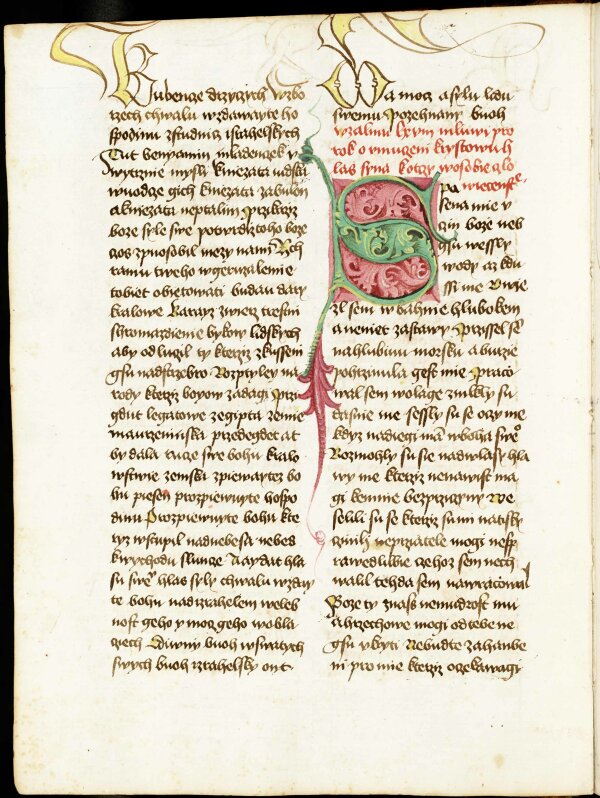 Rubenze drzyczych wzbo
rzech chwalu wzdawayte ho
spodinu zstudnicz istahelskych
Tut benyamin mladenek v
wytrznie mysli kniezata iudska
wuodze gich kniezata zabulon
akniezata neptalim Przikaz
boze syle swe potwrd toho boze
czos zpuosobil mezy nami Och
ramu tweho wgeruzalemie
tobiet obietowati budau dary
kralowe Katayz zwierz trestin
schromazdienie bykow lidskych
aby odluzil ty kteriz zkusseni
gsu nadstrzebro Rozptyley na
rody kteriz boyow zadagi przi
gdut legatowe zegipta zemie
maurzeninska przedegdet at
by dala ruze swe bohu kralo
wstwie zemski zpiewaytez bo
hu piesen prozpiewuyte hospo
dinu Prozpiewuyte bohu kte
ryz wstupil nadnebesa nebes
kwychodu slunce Aaydat hla
su swe hlas syly chwalu wzday
te bohu nadizrahelem weleb
nost geho y moz geho wobla
cziech Diwny buoh wswatych
swych buoh izrahelsky ont
da mocz asylu lidu
swemu Pozehnany buoh
wzalmu lxviii mluwi pro
rok o vmuczeni krystowu h
las syna kotrzy wosobie glo
wieczenske
pa
sena mie v
czin boze neb
su wessly
wody az kdu
ssi me Uwie
zl sem wbahnie hlubokem
a neniet zastawy Przissel se
nahlubinu morsku a burzie
pohrzimula gest mie praco
wal sem wolage zmlkly su
czasnie me sessly su se oczy me
kdyz nadiegi mam wboha sweho
Rozmohly su sie nadwlasy hla
wy me kteriz nenawist ma
gi kemnie bezprziczyny Ze
selili su se kteriz su mi natisky
czinili neprzatele mogi nesp
rawedliwie czehoz sem nech
watil tehda sem nawraczowal
Boze ty znass nemudrost mu
a hrzechowe mogi odtebe ne
gsu vkryti Nebudte zahanbe
ni pro mie kteriz oczekawagi